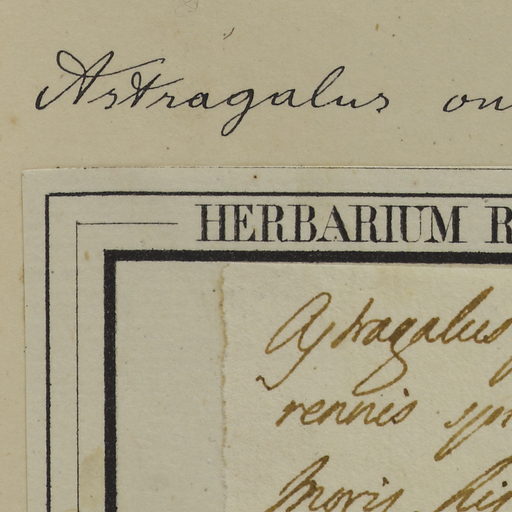 Astragalus on
HERBARIUM R
Astragalus
rennis
moris